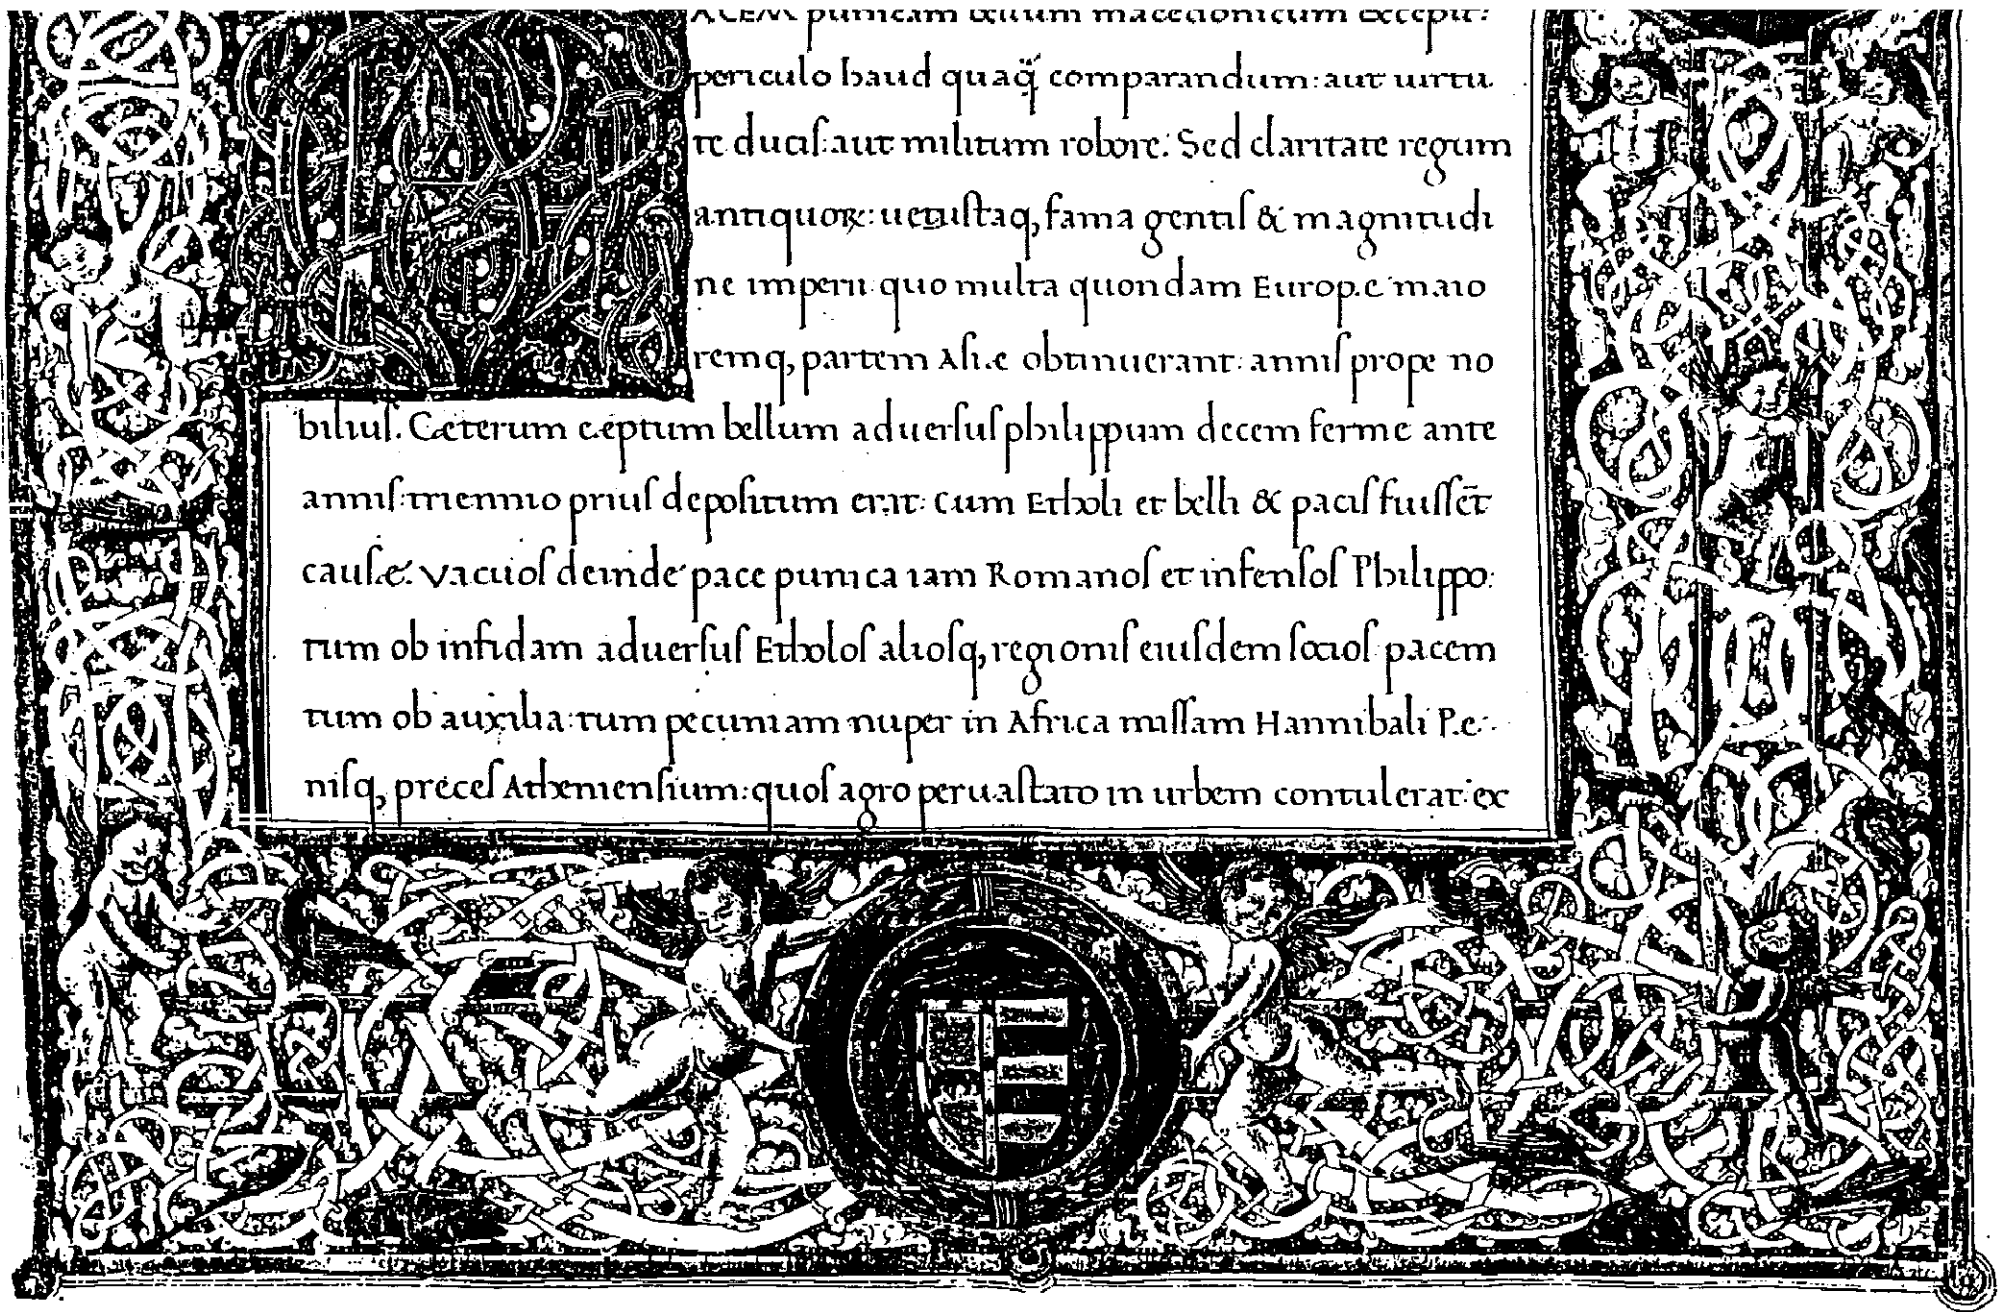 ACEM punicam bellum macedonicum excepit:
periculo haud quaq̃ comparandum: aut uirtu
te ducis: aut militum robore: Sed claritate regum
antiquoꝝ: uetustaq, fama gentis & magnitudi
ne imperii: quo multa quondam Europæ maio
remq, partem Asiæ obtinuerant: annis prope no
bilius. Cæterum cæptum bellum aduersus philippum decem ferme ante
annis: triennio prius depositum erat: cum Etholi et belli & pacis fuissēt
causæ. Vacuos deinde pace punica iam Romanos et infensos Philippo:
tum ob infidam aduersus Etholos aliosq, regionis eiusdem socios pacem
tum ob auxilia: tum pecuniam nuper in Africa missam Hannibali Pæ
nisq, preces Atheniensium: quos agro peruastato in urbem contulerat: ex